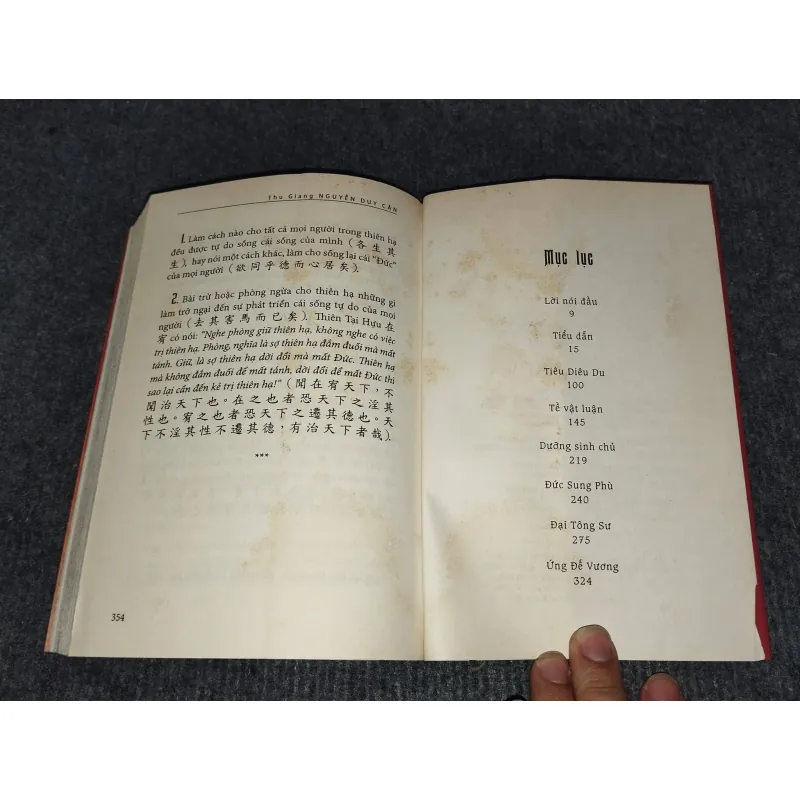 Thu Giang NGUYỄN DUY CẦN
1. Làm cách nào cho tất cả mọi người trong thiên hạ
đều được tự do sống cái sống của mình (各生其
生), hay nói một cách khác, làm cho sống lại cái "Đức"
của mọi người (欲同乎德而心居矣).
2. Bài trừ hoặc phòng ngừa cho thiên hạ những gì
làm trở ngại đến sự phát triển cái sống tự do của mọi
người (去其害馬而已矣). Thiên Tại Hựu 在
宥 có nói: "Nghe phòng giữ thiên hạ, không nghe có việc
trị thiên hạ. Phòng, nghĩa là sợ thiên hạ đắm đuối mà mất
tánh. Giữ, là sợ thiên hạ dời đổi mà mất Đức. Thiên hạ
mà không đắm đuối để mất tánh, dời đổi để mất Đức thì
sao lại cần đến kẻ trị thiên hạ!" (聞在宥天下, 不
聞治天下也. 在之也者恐天下之淫其
性也. 宥之也者恐天下之遷其德也. 天
下不淫其性不遷其德, 有治天下者哉).
***
354
Mục lục
Lời nói đầu
9
Tiểu dẫn
15
Tiêu Diêu Du
100
Tề vật luận
145
Dưỡng sinh chủ
219
Đức Sung Phù
240
Đại Tông Sư
275
Ứng Đế Vương
324